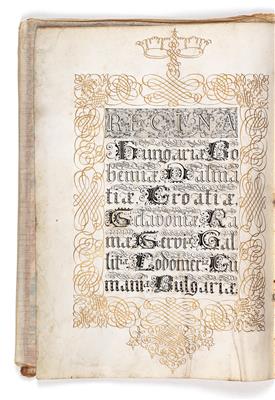 REGINA
Hungariæ Bo
hemiæ Dalma
tiæ Croatiæ
Sclavoniæ Ra
mæ Serviæ Gal
litiæ Lodomeriæ Cu
maniæ Bulgariæ